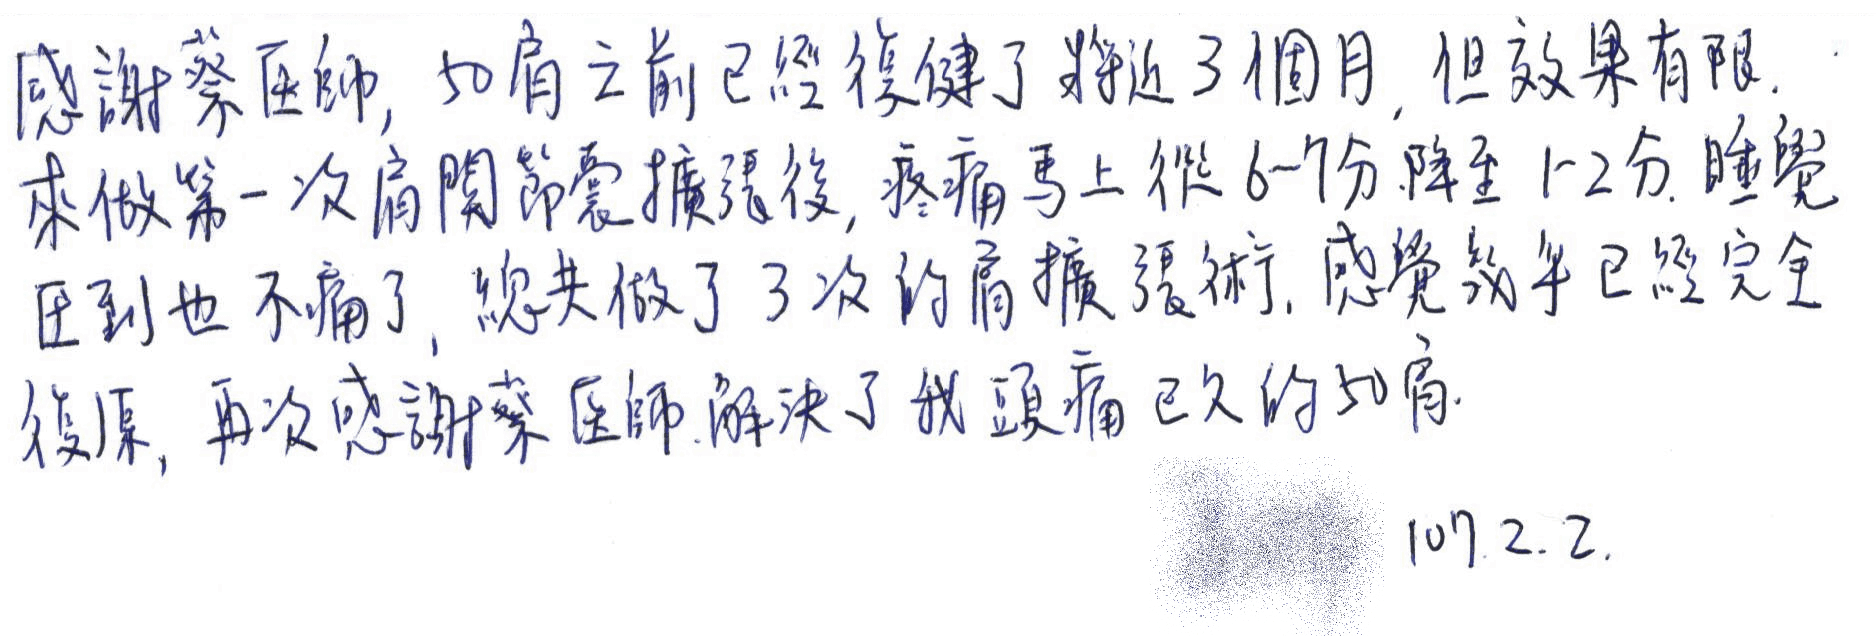 感謝蔡医師, 50肩之前已經復健了將近3個月, 但效果有限.
來做第一次肩関節囊擴張後, 疼痛馬上從6-7分降至1-2分. 睡覺
压到也不痛了, 總共做了3次的肩擴張術. 感覺幾乎已經完全
復原, 再次感謝蔡医師.解決了我頭痛已久的50肩.
107.2.2.